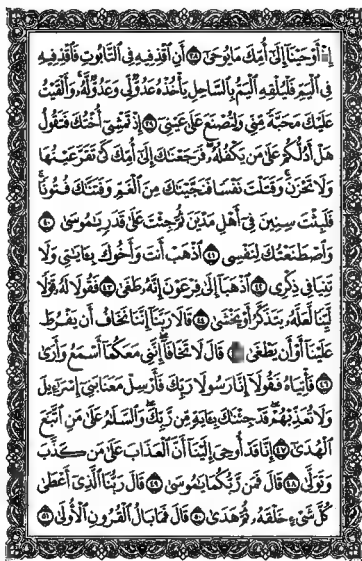 إِذْ أَوْحَيْنَآ إِلَىٰٓ أُمِّكَ مَا يُوحَىٰٓ ٣٨ أَنِ ٱقْذِفِيهِ فِى ٱلتَّابُوتِ فَٱقْذِفِيهِ
فِى ٱلْيَمِّ فَلْيُلْقِهِ ٱلْيَمُّ بِٱلسَّاحِلِ يَأْخُذْهُ عَدُوٌّ لِّى وَعَدُوٌّ لَّهُۥ وَأَلْقَيْتُ
عَلَيْكَ مَحَبَّةً مِّنِّى وَلِتُصْنَعَ عَلَىٰ عَيْنِىٓ ٣٩ إِذْ تَمْشِىٓ أُخْتُكَ فَتَقُولُ
هَلْ أَدُلُّكُمْ عَلَىٰ مَن يَكْفُلُهُۥ فَرَجَعْنَٰكَ إِلَىٰٓ أُمِّكَ كَىْ تَقَرَّ عَيْنُهَا
وَلَا تَحْزَنَ وَقَتَلْتَ نَفْسًا فَنَجَّيْنَٰكَ مِنَ ٱلْغَمِّ وَفَتَنَّٰكَ فُتُونًا
فَلَبِثْتَ سِنِينَ فِىٓ أَهْلِ مَدْيَنَ ثُمَّ جِئْتَ عَلَىٰ قَدَرٍ يَٰمُوسَىٰ ٤٠
وَٱصْطَنَعْتُكَ لِنَفْسِى ٤١ ٱذْهَبْ أَنتَ وَأَخُوكَ بِـَٔايَٰتِى وَلَا
تَنِيَا فِى ذِكْرِى ٤٢ ٱذْهَبَآ إِلَىٰ فِرْعَوْنَ إِنَّهُۥ طَغَىٰ ٤٣ فَقُولَا لَهُۥ قَوْلًا
لَّيِّنًا لَّعَلَّهُۥ يَتَذَكَّرُ أَوْ يَخْشَىٰ ٤٤ قَالَا رَبَّنَآ إِنَّنَا نَخَافُ أَن يَفْرُطَ
عَلَيْنَآ أَوْ أَن يَطْغَىٰ قَالَ لَا تَخَافَآ إِنَّنِى مَعَكُمَآ أَسْمَعُ وَأَرَىٰ
٤٦ فَأْتِيَاهُ فَقُولَآ إِنَّا رَسُولَا رَبِّكَ فَأَرْسِلْ مَعَنَا بَنِىٓ إِسْرَٰٓءِيلَ
وَلَا تُعَذِّبْهُمْ قَدْ جِئْنَٰكَ بِـَٔايَةٍ مِّن رَّبِّكَ وَٱلسَّلَٰمُ عَلَىٰ مَنِ ٱتَّبَعَ
ٱلْهُدَىٰٓ ٤٧ إِنَّا قَدْ أُوحِىَ إِلَيْنَآ أَنَّ ٱلْعَذَابَ عَلَىٰ مَن كَذَّبَ
وَتَوَلَّىٰ ٤٨ قَالَ فَمَن رَّبُّكُمَا يَٰمُوسَىٰ ٤٩ قَالَ رَبُّنَا ٱلَّذِىٓ أَعْطَىٰ
كُلَّ شَىْءٍ خَلْقَهُۥ ثُمَّ هَدَىٰ ٥٠ قَالَ فَمَا بَالُ ٱلْقُرُونِ ٱلْأُولَىٰ ٥١